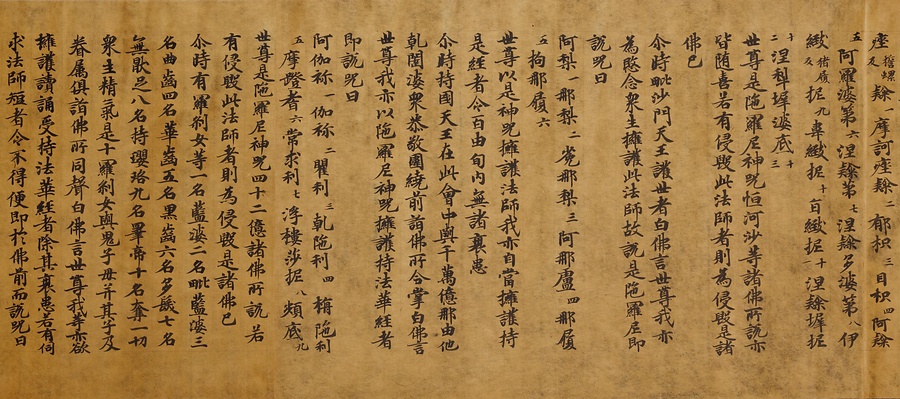 痤誓螺反隸摩訶痤隸二郁枳三目枳四阿隸
五阿羅婆第六涅隸第七涅隸多婆第八伊
緻猪履反抳九韋緻抳十旨緻抳十涅隸墀抳
十二涅犁墀婆底十三
世尊是陁羅尼神呪恒河沙等諸佛所說亦
皆随喜若有侵毀此法師者則為侵毀是諸
佛已
尒時毗沙門天王護世者白佛言世尊我亦
為愍念衆生擁護此法師故說是陁羅尼即
說呪曰
阿梨一那梨二㝹那梨三阿那盧四那履
五拘那履六
世尊以是神呪擁護法師我亦自當擁護持
是經者令百由旬内無諸衰患
尒時持國天王在此會中與千萬億那由他
乹闥婆衆恭敬圍繞前詣佛所合掌白佛言
世尊我亦以陁羅尼神呪擁護持法華經者
即說呪曰
阿伽祢一伽祢二瞿利三乹陁利四栴陁利
五摩蹬耆六常求利七浮樓莎抳八頞底九
世尊是陁羅尼神呪四十二億諸佛所說若
有侵毀此法師者則為侵毀是諸佛已
尒時有羅刹女等一名藍婆二名毗藍婆三
名曲齒四名華齒五名黑齒六名多髮七名
無猒足八名持瓔珞九名睪帝十名奪一切
衆生精氣是十羅刹女與鬼子母并其子及
眷属俱詣佛所同聲白佛言世尊我等亦欲
擁護讀誦受持法華經者除其衰患若有伺
求法師短者令不得便即於佛前而說呪曰